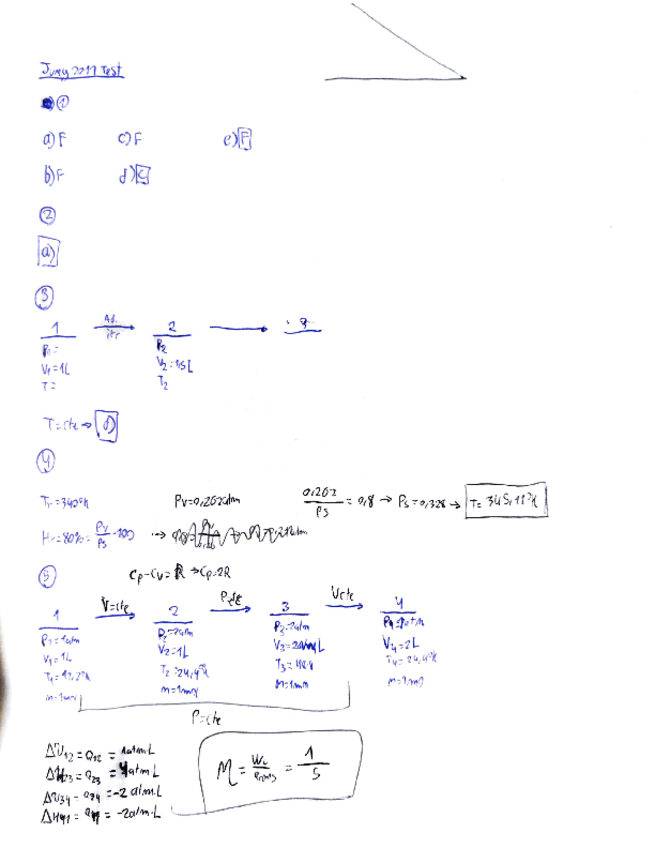 June 2017 Test
①
a) F c) F e) F
b) F d) C
②
a)
③
1 Ad. 2
P1= P2
V1=1L V2=1,5L
T= T2
T=cte → d)
④
Tr=340ºK Pv=0,262atm 0,262/Ps = 0,8 → Ps=0,328 → T= 345,11ºK
Hr=80%= Pv/Ps ·100 →
⑤ Cp-Cv= R → Cp=2R
1 V=cte 2 P=cte 3 Vcte 4
P1=1atm P2=2atm P3=2atm P4=1atm
V1=1L V2=1L V3=2L V4=2L
T1=12,2ºK T2=24,4ºK T3= T4=24,4ºK
n=1mol n=1mol n=1mol n=1mol
P=cte
ΔU12 = Q12 = 1atm.L
ΔH23 = Q23 = 4atm.L η = Wc/ = 1/5
ΔU34 = Q34 = -2 atm.L
ΔH41 = Q41 = -2atm.L